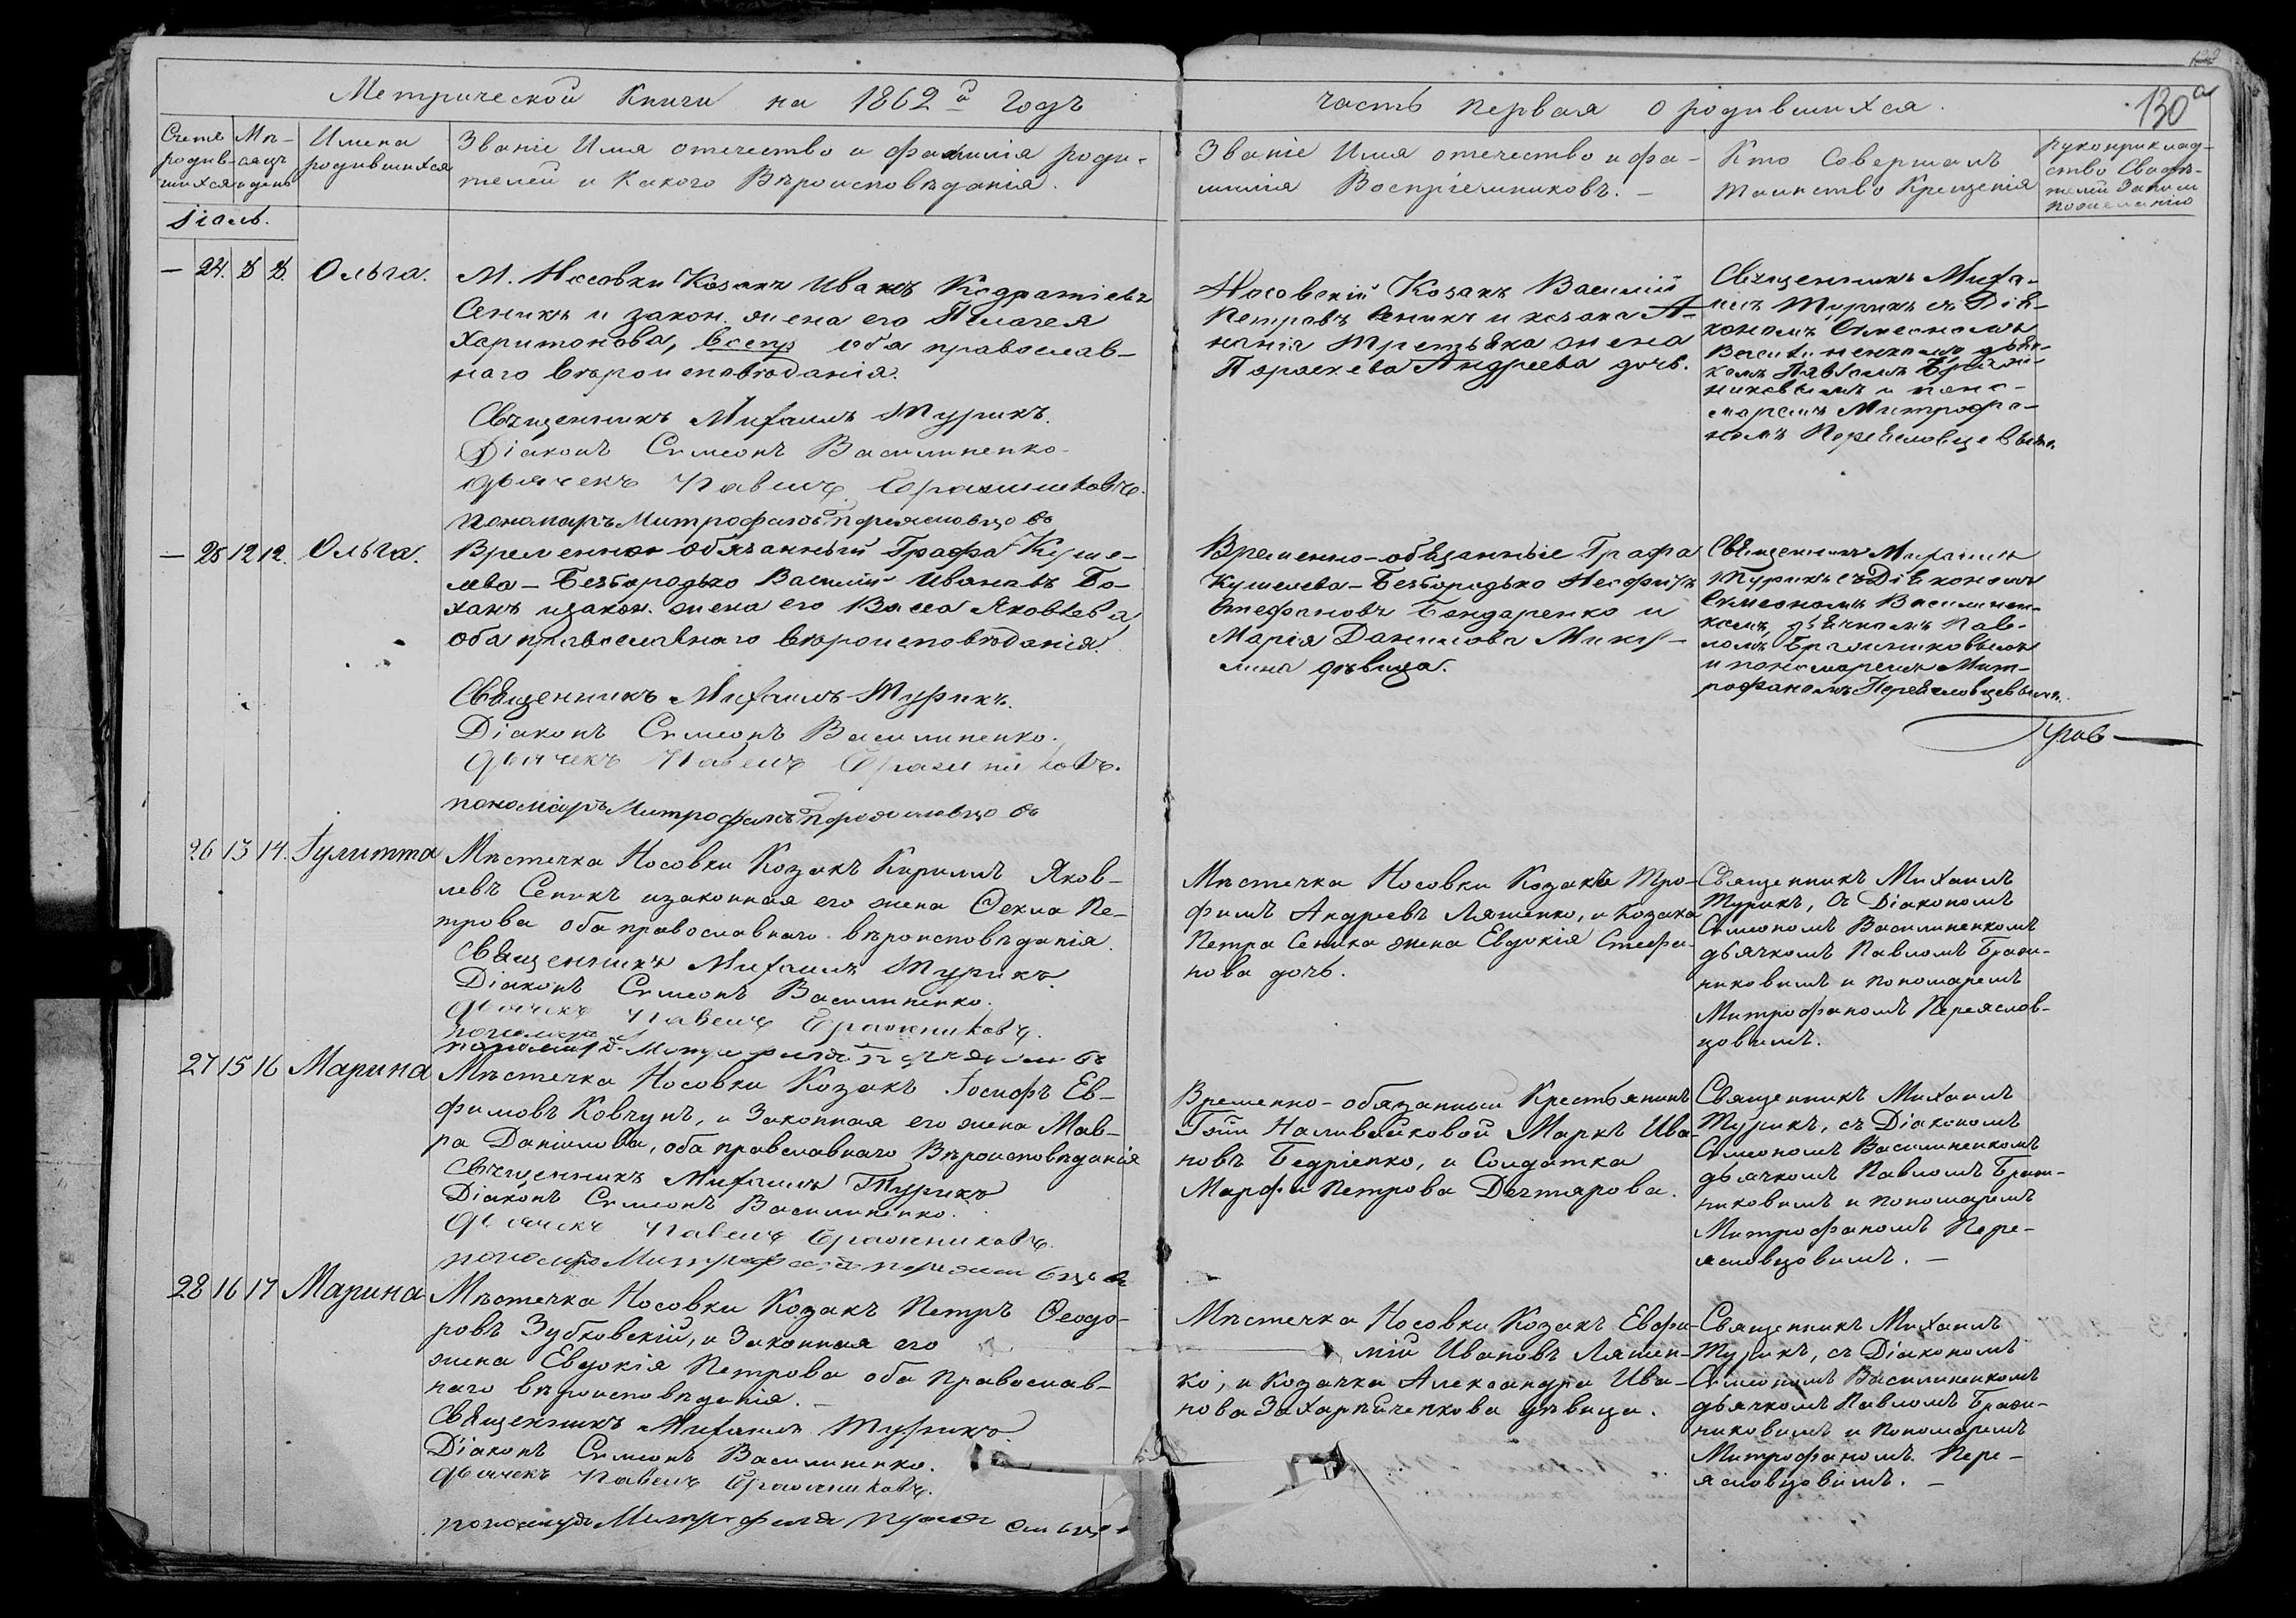 Метрической Книги на 1862й Годъ
часть первая о родившихся.
130
Счетъ родив-шихся
Мѣ-сяцъ и день
Имена родившихся
Званіе Имя отечество и фамилія роди-
телей и какого Вѣроисповѣданія.
Званіе Имя отечество и фа-
милія Воспріемниковъ. —
Кто Совершалъ
таинство Крещенія
рукоприклад-
ство Свидѣ-
телей Записи
по желанію
Іюль.
— 24. 8 8. Ольга.
М. Носовки Козакъ Иванъ Кодратіевъ
Сеникъ и закон. жена его Пелагея
Харитонова, оба православ-
наго вѣроисповѣданія.
Священникъ Михаилъ Турикъ.
Діаконъ Симеонъ Василиненко.
дьячекъ Павелъ Бражниковъ.
пономаръ Митрофанъ
Носовскій Козакъ Василій
Петровъ Сеникъ и козака А-
нанія Третьяка жена
Параскева Андреева дочь.
Священникъ Миха-
илъ Турикъ съ Діа-
кономъ Симеономъ
Василиненкомъ дьяч-
комъ Павломъ Бражни-
никовымъ и поно-
маремъ Митрофа-
номъ
— 25 12 12. Ольга.
Временно-обязанный Графа Куше-
лева-Безбородько Василій Ивановъ Бо-
ханъ и закон. жена его Васса Яковлева,
оба православнаго вѣроисповѣданія.
Священникъ Михаилъ Турикъ.
Діаконъ Симеонъ Василиненко.
дьячекъ Павелъ Бражниковъ.
пономаръ Митрофанъ
Временно-обязанные Графа
Кушелева-Безбородько
Стефановъ Бондаренко и
Марія Данилова Мику-
лина дѣвица.
Священникъ Михаилъ
Турикъ съ Діакономъ
Симеономъ Василинен-
комъ, дьячкомъ Пав-
ломъ Бражниковымъ
и пономаремъ Мит-
рофаномъ
26 13 14. Іулитта
Мѣстечка Носовки Козакъ Кирилъ Яков-
левъ Сеникъ и законная его жена Ѳекла Пе-
трова оба православнаго вѣроисповѣданія.
Священникъ Михаилъ Турикъ.
Діаконъ Симеонъ Василиненко.
дьячекъ Павелъ Бражниковъ.
Мѣстечка Носовки Козакъ Тро-
фимъ Андреевъ Ляшенко, и Козака
Петра Сеника жена Евдокія Стефа-
нова дочь.
Священникъ Михаилъ
Турикъ, съ Діакономъ
Симеономъ Василиненкомъ
дьячкомъ Павломъ Браж-
никовимъ и пономаремъ
Митрофаномъ Переяслов-
цовимъ.
27 15 16 Марина
Мѣстечка Носовки Козакъ Іосифъ Ев-
фимовъ Ковчунъ, и Законная его жена Мав-
ра Даніилова, оба православнаго Вѣроисповѣданія
Священникъ Михаилъ Турикъ
Діаконъ Симеонъ Василиненко.
дьячекъ Павелъ Бражниковъ.
Временно-обязанный Крестьянинъ
Наливайковой Маркъ Ива-
новъ Бедріенко, и Солдатка
Марфа Петрова Дегтярова.
Священникъ Михаилъ
Турикъ, съ Діакономъ
Симеономъ Василиненкомъ
дьячкомъ Павломъ Браж-
никовимъ и пономаремъ
Митрофаномъ Пере-
ясловцовимъ. —
28 16 17 Марина
Мѣстечка Носовки Козакъ Петръ Ѳеодо-
ровъ Зубковскій, и Законная его
жена Евдокія Петрова оба Православ-
наго вѣроисповѣданія. —
Священникъ Михаилъ Турикъ.
Діаконъ Симеонъ Василиненко.
дьячекъ Павелъ Бражниковъ.
Мѣстечка Носовки Козакъ Евфи-
мій Ивановъ Ляшен-
ко, и Козачка Александра Ива-
нова Захарѣйченкова дѣвица.
Священникъ Михаилъ
Турикъ, съ Діакономъ
Симеономъ Василиненкомъ
дьячкомъ Павломъ Браж-
никовимъ и Пономаремъ
Митрофаномъ Пере-
ясловцовімъ. —